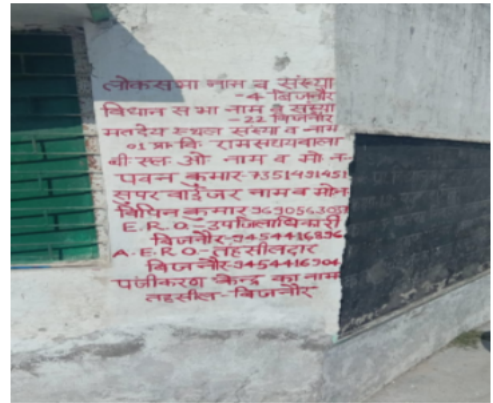 लोकसभा नाम व संख्या
-4- बिजनौर
विधान सभा नाम व संख्या
-22 बिजनौर
मतदेय स्थल संख्या व नाम
01 प्रा. वि. रामसहायवाला
बी.एल. ओ. नाम व मो. न.
पवन कुमार-7351491451
सुपरवाईजर नाम व मोन.
बिपिन कुमार
E.R.O.- उपजिलाधिकारी
बिजनौर-9454416896
A.E.R.O.-तहसीलदार
बिजनौर-9454416904
पंजीकरण केन्द्र का नाम
तहसील-बिजनौर